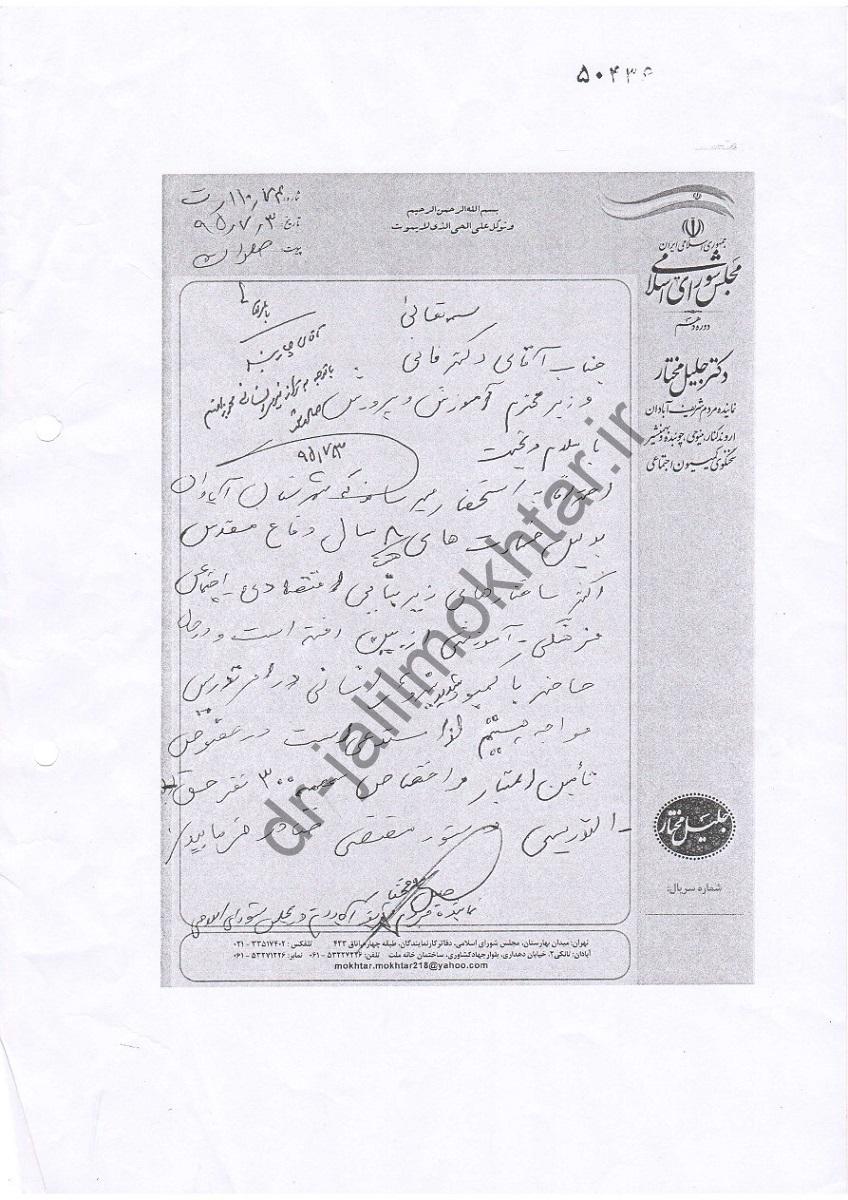 ۵۰۴۳۶
بسم الله الرحمن الرحیم
وتوکل علی الحی الذی لا یموت
شماره: ۱۱۰٫۷۴ ر ت
تاریخ: ۹۵٫۷٫۳
پیوست:
جمهوری اسلامی ایران
مجلس شورای اسلامی
دوره دهم
دکتر جلیل مختار
نماینده مردم شریف آبادان
اروندکنار، مینوحی، چوئبده و بهمنشیر
سخنگوی کمیسیون اجتماعی
جلیل مختار
شماره سریال:
بسمه تعالی
جناب آقای دکتر فانی
وزیر محترم آموزش و پرورش
با سلام و تحیت
احتراماً به استحضار میرساند که شهرستان آبادان
بدلیل خسارت های ۸ سال دفاع مقدس
اکثر ساختارهای زیربنایی اقتصادی - اجتماعی
فرهنگی - آموزشی از بین رفته است و در حال
حاضر با کمبود شدید نیروی انسانی در امر تدریس
مواجه هستیم لذا مستدعی است در خصوص
تأمین اعتبار و اختصاص سهمیه ۳۰۰ نفر حق
التدریس دستور مقتضی صادر فرمایید
جلیل مختار
نماینده مردم شریف آبادان در مجلس شورای اسلامی
آقای
با توجه به نیروی انسانی
۹۵٫۷٫۳
تهران: میدان بهارستان، مجلس شورای اسلامی، دفاتر کار نمایندگان، طبقه چهارم اتاق ۴۲۳ تلفکس: ۳۳۵۱۷۴۰۲ - ۰۲۱
آبادان: تانکی۲، خیابان دهداری، بلوار جهاد کشاورزی، ساختمان خانه ملت تلفن: ۵۳۲۲۷۲۲۶ - ۰۶۱ نمابر: ۵۳۲۷۱۲۲۶ - ۰۶۱
mokhtar.mokhtar218@yahoo.com
dr-jalilmokhtar.ir